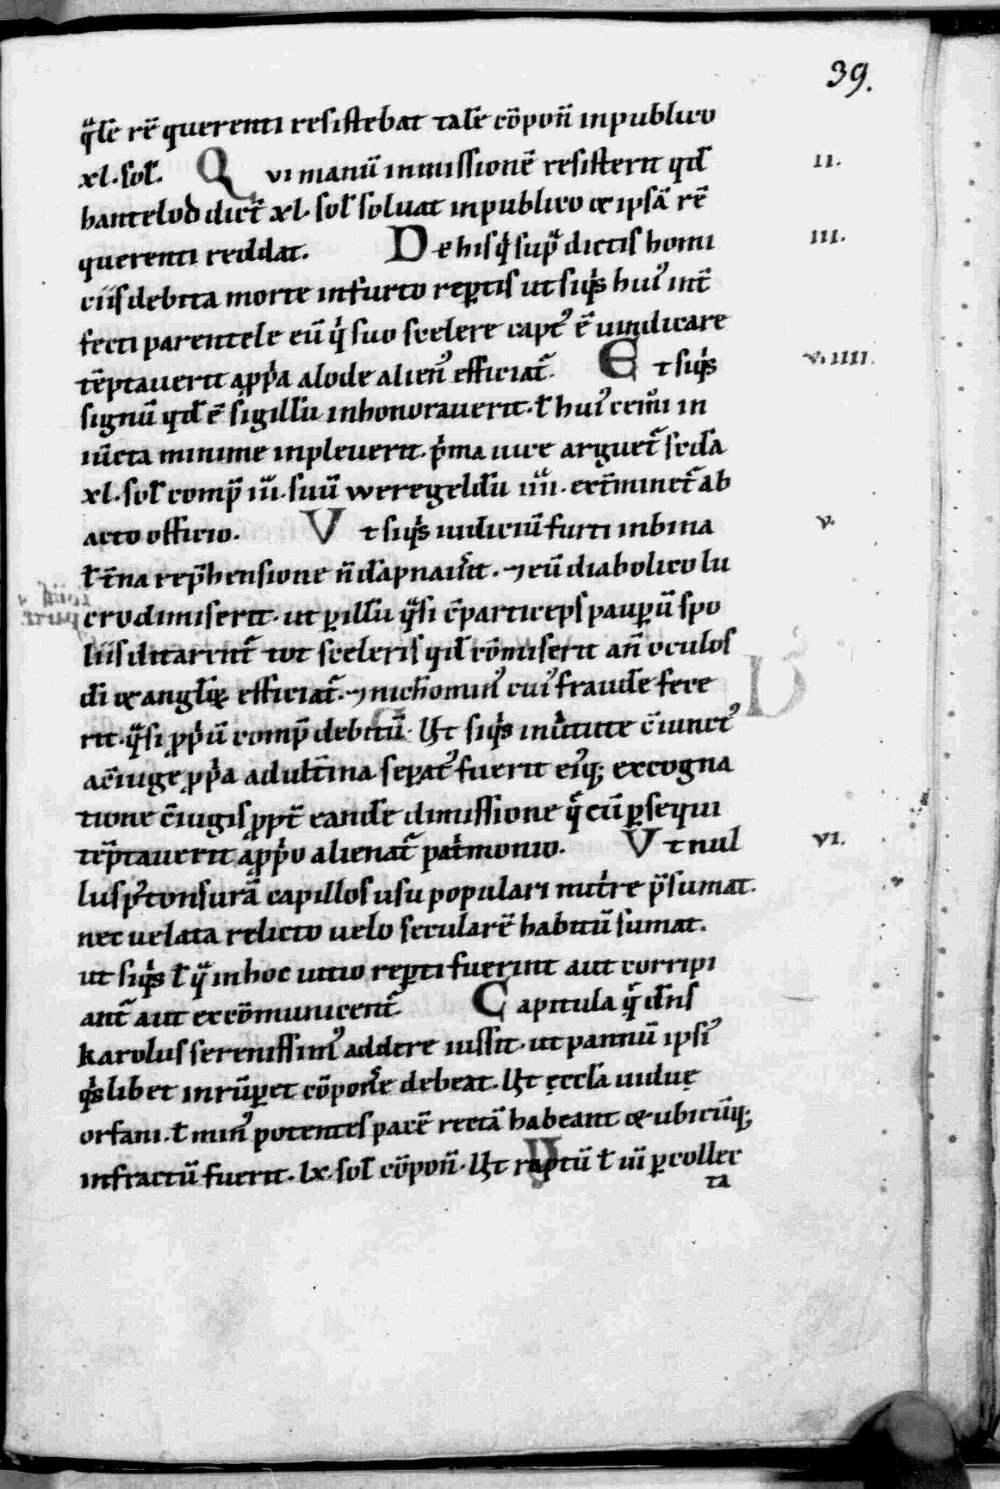 39.
q̄lē rē querenti resistebat talē cōpon̄ inpublico
xl. sol̄. Qui manū inmissionē resisterit qd̄ II.
hantelod dict̄ xl. sol̄ soluat inpublico & ipsā rē
querenti reddat. De hisq̄ sup̄ dictis homi III.
ciis debita morte infurto rep̄tis ut siq̄s hui᾽ int̄
fecti parentele eū q̄ suo scelere capt᾽ ē uindicare
tēptauerit app̄a alode alien᾽ efficiat᾽. Et siq̄s V. IIII.
signū qd̄ ē sigillū inhonorauerit. ł hui᾽
iūcta minime inpleuerit. p̄ma uice arguet᾽ scd̄a
xl. sol̄ comp̄ iii̅. suū weregeldū iiii̅. ext̄minet᾽ ab
acto officio. Vt siq̄s iudiciū furti inbina V.
ł t̄na rep̄hensione n̄ dāpnauit. ⁊ eū diabolico lu
cro dimiserit. ut p̄ illū q̄si c̄particeps paup̄ū spo
liis ditarent᾽ tot sceleris qd̄ cōmiserit an̄ oculos
dī & anglꝝ efficiat᾽. ⁊ nich̄omin᾽ cui᾽ fraudē fece
rit. q̄si p̄p̄ū comp̄ debitū. Ut siq̄s
ac̄iuge p̄p̄a adult̄ina sep̄at᾽ fuerit ei᾽q; excogna
tione c̄iugis p̄pt̄ eandē dimissionē q̄ cū p̄sequi
tēptauerit ap̄p̄o alienat᾽ pat̄monio. Vt nul VI.
lus p᾽tonsurā capillos usu populari nut̄re p̄sumat.
nec uelata relicto uelo secularē habitū sumat.
ut siq̄s ł q̄ in hoc uitio rep̄ti fuerint aut corripi
ant᾽ aut excōmunicent᾽. Capitula q̄ dn̄s
karolus serenissim᾽ addere iussit. ut pannū ipsi᾽
q̄slibet inrūp̄et cōpon̄e debeat. Ut ęccl̄a uiduę
orfani. ł min᾽ potentes pacē rectā habeant & ubicūq;
infractū fuerit. lx. sol̄ cōpon̄. Ut raptū ł uī p̄ collec
ta